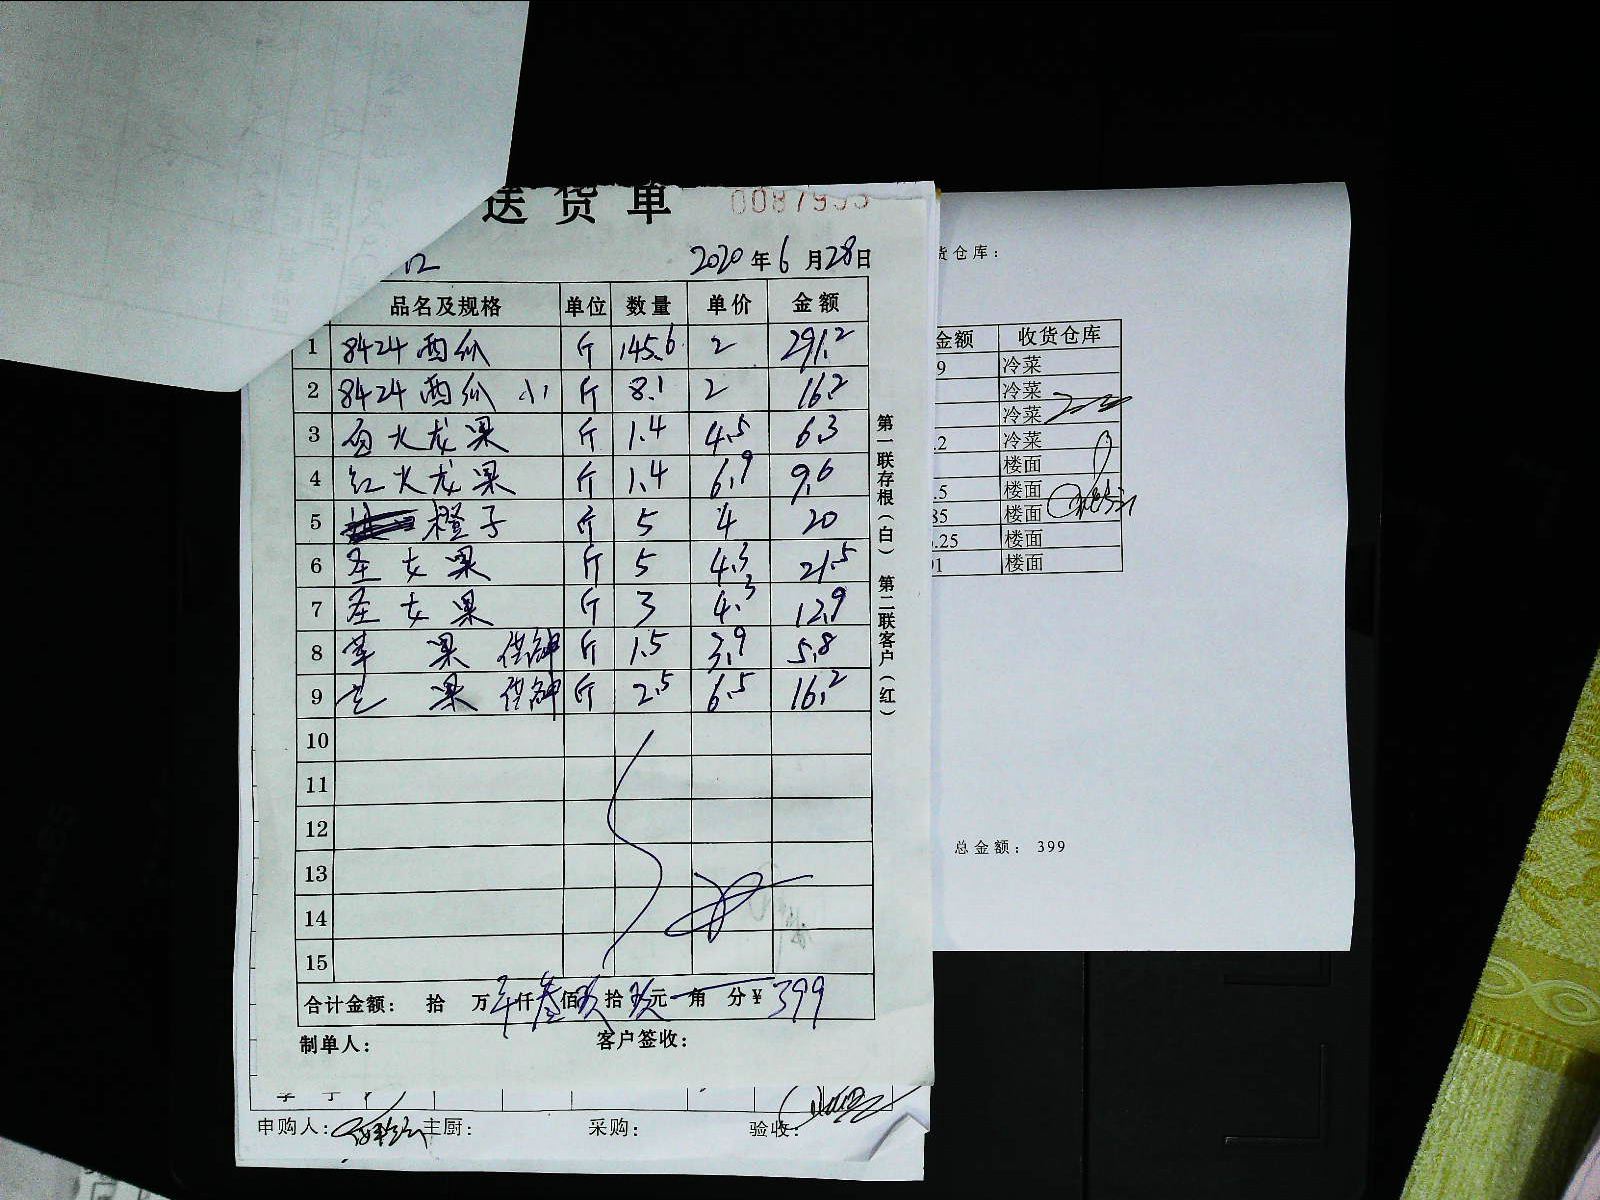 送货单 0087993
2020年6月28日
品名及规格 单位 数量 单价 金额
1 8424西瓜 斤 145.6 2 291.2
2 8424西瓜 小 斤 8.1 2 16.2
3 白火龙果 斤 1.4 4.5 6.3
4 红火龙果 斤 1.4 6.9 9.6
5 橙子 斤 5 4 20
6 圣女果 斤 5 4.3 21.5
7 圣女果 斤 3 4.3 12.9
8 苹果 斤 1.5 3.9 5.8
9 芒果 斤 2.5 6.5 16.2
10
11
12
13
14
15
合计金额: 拾 万 仟叁佰玖拾玖元 角 分¥399
制单人: 客户签收:
第一联存根(白) 第二联客户(红)
申购人: 主厨: 采购: 验收:
货仓库:
金额 收货仓库
9 冷菜
冷菜
冷菜
.2 冷菜
楼面
.5 楼面
85 楼面
.25 楼面
91 楼面
总金额: 399